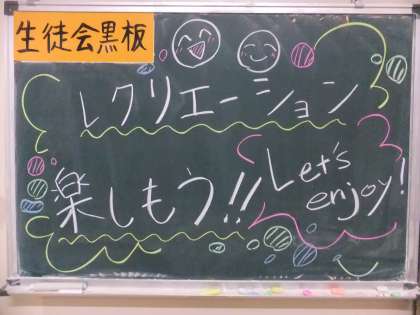 生徒会黒板
レクリエーション
楽しもう!!
Let's
enjoy!